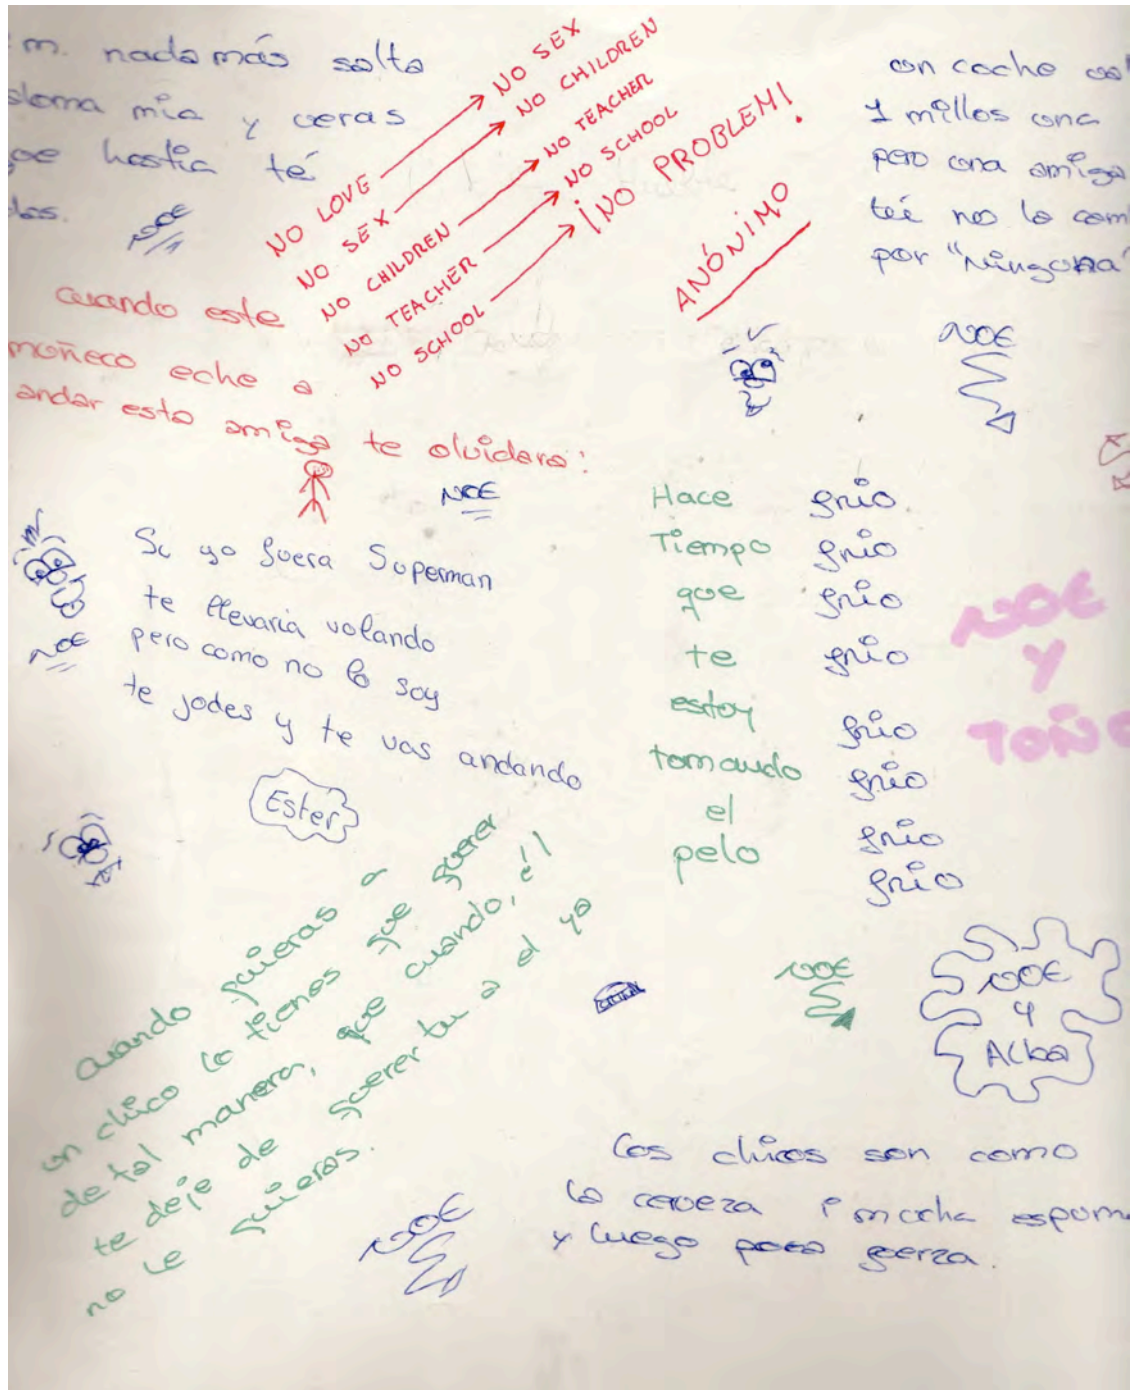 m. nada más salta
mia y veras
hostia té
NOE
NO LOVE → NO SEX
NO SEX → NO CHILDREN
NO CHILDREN → NO TEACHER
NO TEACHER → NO SCHOOL
NO SCHOOL → ¡NO PROBLEM!
ANÓNIMO
un coche
1 millos una
pero una amiga
no lo com
por "Ninguna"
NOE
cuando este
muñeco eche a
andar esta amiga te olvidara:
NOE
NOE
Si yo fuera Superman
te llevaria volando
pero como no lo soy
te jodes y te vas andando
Ester
Hace frio
Tiempo frio
que frio
te frio
estoy frio
tomando frio
el frio
pelo frio
NOE
Y
TOÑO
cuando quieras a
un chico lo tienes que querer
de tal manera, que cuando, él
te deje de querer tu a el ya
no le quieras.
NOE
NOE
NOE
y
Alba
Los chicos son como
la cerveza mucha espuma
y luego poca fuerza.